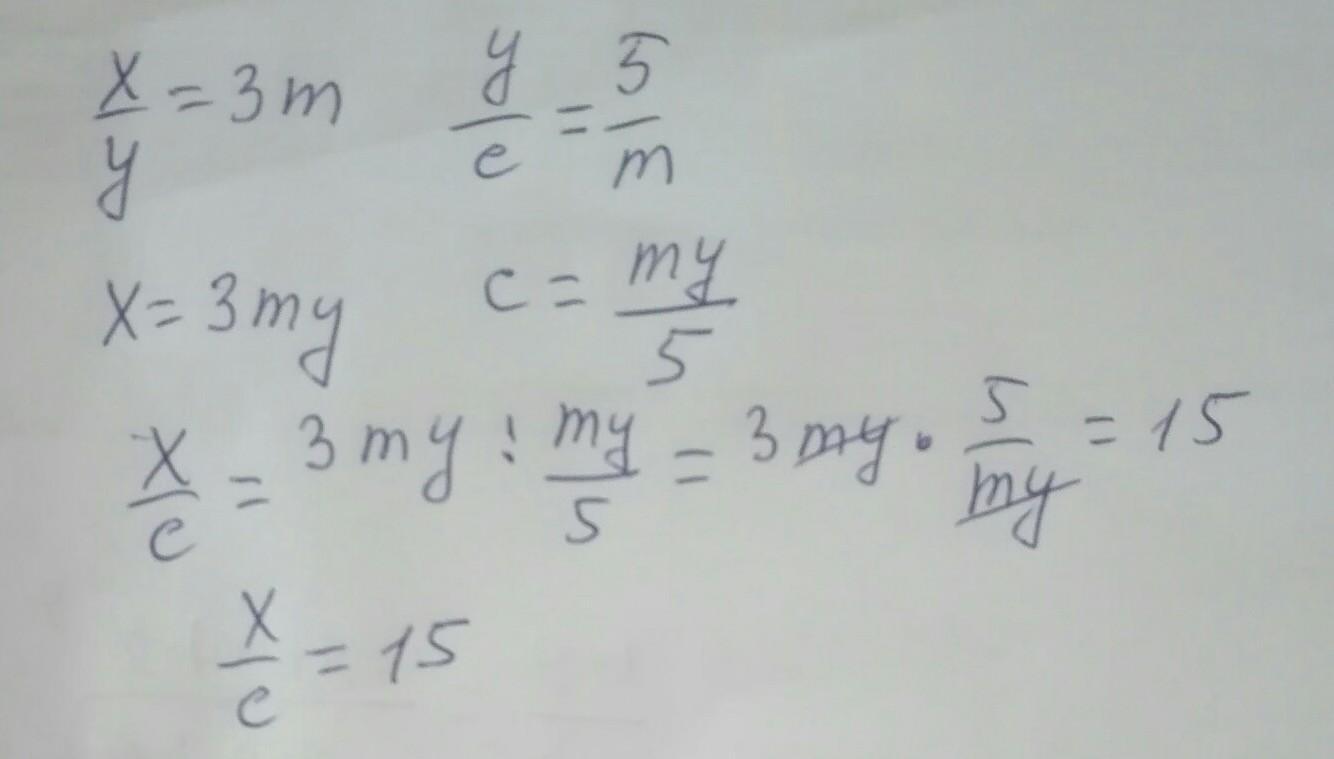 x/y = 3m y/c = 5/m
x = 3my c = my/5
x/c = 3my : my/5 = 3my · 5/my = 15
x/c = 15